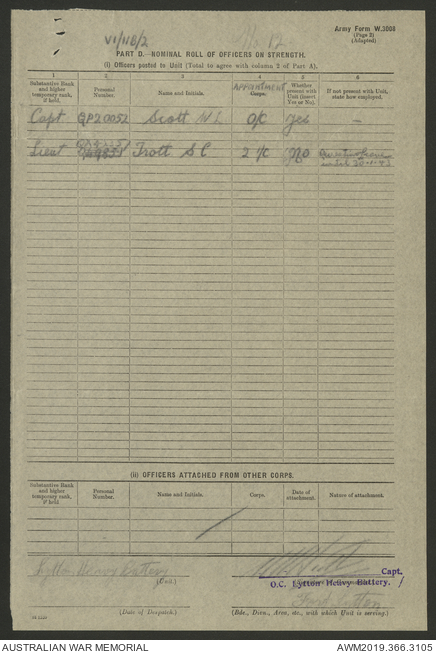 VI/11B/2
Army Form W.3008
(Page 3)
(Adapted)
PART D.—NOMINAL ROLL OF OFFICERS ON STRENGTH.
(i) Officers posted to Unit (Total to agree with column 2 of Part A).
1 2 3 4 5 6
Substantive Rank and higher temporary rank, if held.
Personal Number.
Name and Initials.
APPOINTMENT
Corps.
Whether present with Unit (insert Yes or No).
If not present with Unit, state how employed.
Capt. QP20052 Scott W L O/C Yes —
Lieut Trott S C 2 I/C No
(ii) OFFICERS ATTACHED FROM OTHER CORPS.
Substantive Rank and higher temporary rank, if held
Personal Number.
Name and Initials.
Corps.
Date of attachment.
Nature of attachment.
Lytton Heavy Battery
(Unit.)
Capt.
O.C. Lytton Heavy Battery.
(Date of Despatch.)
(Bde., Divn., Area, etc., with which Unit is serving.)
AUSTRALIAN WAR MEMORIAL
AWM2019.366.3105